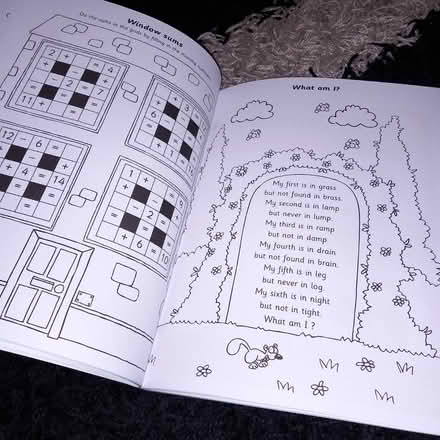 Window sums
Do the sums in the grids by filling in the missing numbers.
2 + =
+ + +
- 2 = 7
= = =
11 +
+ 3
6
+
+ 1
12 - 6 =
+
+ 4 = 14
= = =
1 + = 5
+ +
- 2 =
= = =
+ 6 = 10
What am I?
My first is in grass
but not found in brass.
My second is in lamp
but never in lump.
My third is in ramp
but not in damp
My fourth is in drain
but not found in brain.
My fifth is in leg
but never in log.
My sixth is in night
but not in tight.
What am I ?